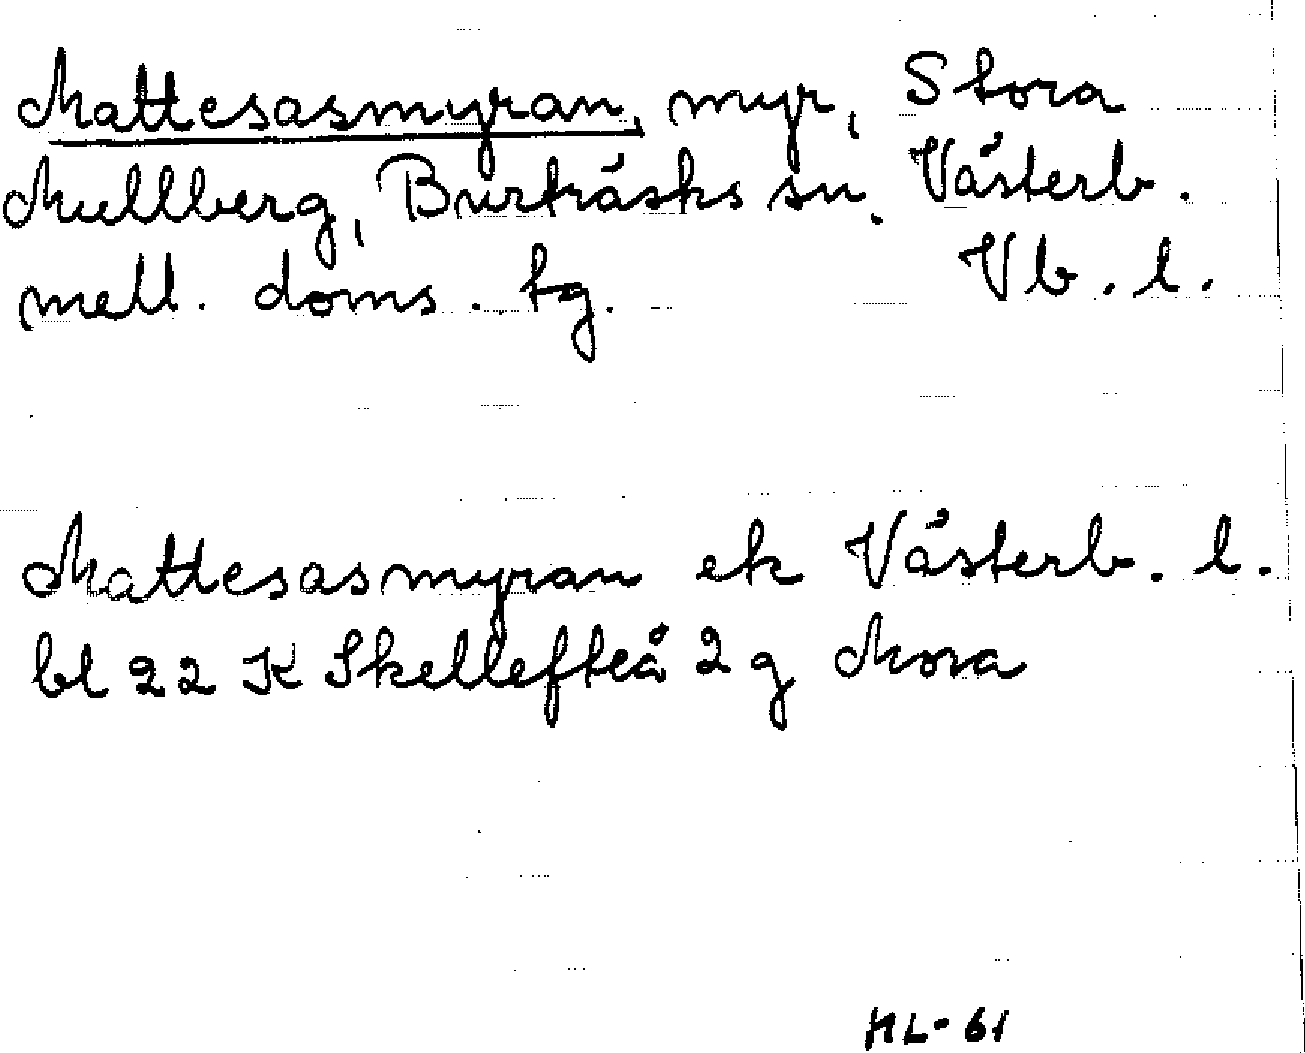 Mattesasmyran, myr, Stora
Mullberg, Burträsks sn. Västerb.
mell. doms. tg. Vb. l.
Mattesasmyran ek Västerb. l.
bl 22 K Skellefteå 2 g Mora
HL-61